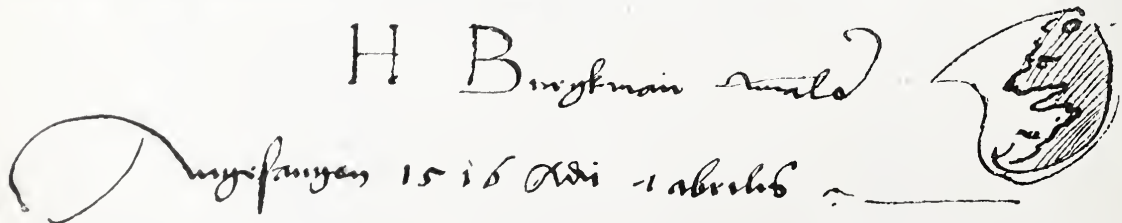 H Burgkmair maler
Angefangen 1516 Adii 1 abrilis